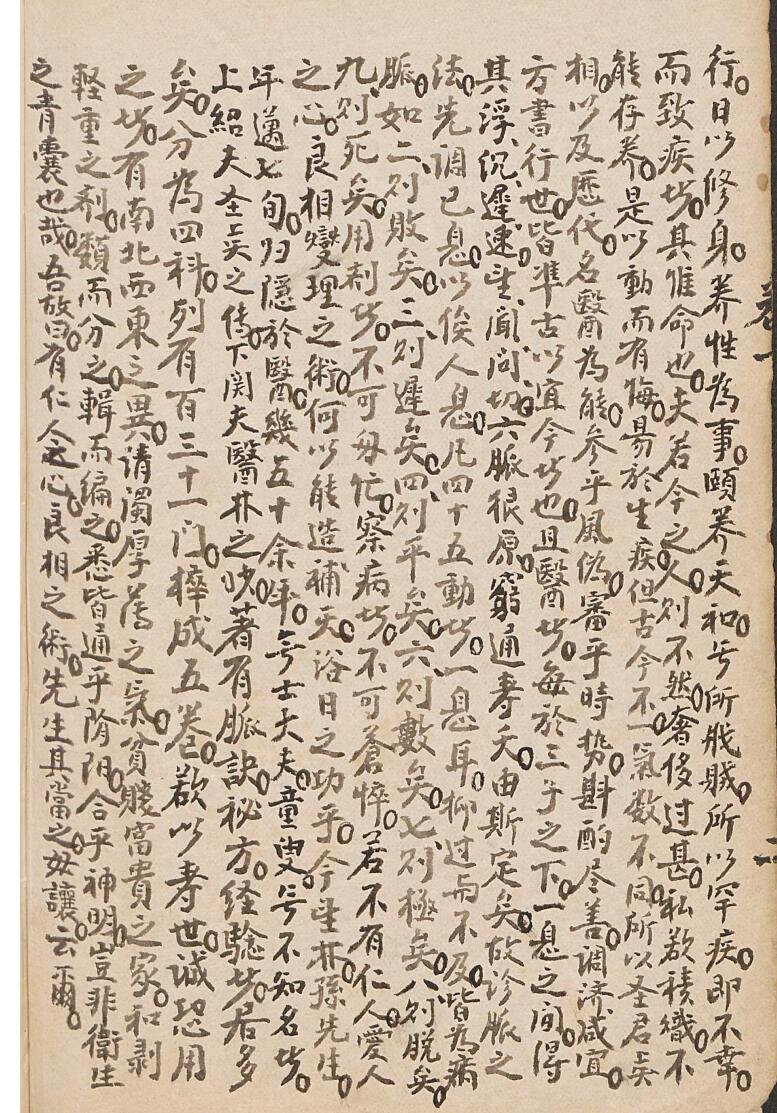 行。日以修身。养性為事。頤养天和。㒷所戕賊。所以罕疾。即不幸。
而致疾㘯。其惟命也。夫若今之人。则不然。奢侈过甚。私欲積熾。不
能存养。是以動而有悔。昜於生疾。但古今不一。氣数不同。所以圣君𡘊
相。以及歷代。名醫為能。参乎風伪。審乎時势。斟酌尽善。調济咸宜。
方書行世。皆準古以宜今㘯也。且醫㘯。每於三子之下。一息之间。得
其浮、沉、遲、速、望、闻、问、切、六脈根原。窮通寿夭。由斯定矣。故诊脈之
法。先調已息。以俟人息。凡四十五動㘯。一息耳。抑过与不及。皆為病
脈。如二则敗矣。三则遲矣。四则平矣。六则數矣。七则極矣。八则脱矣。
九则死矣。用剂㘯。不可匆忙。察病㘯。不可蒼悴。若不有仁人愛人
之心。良相燮理之術。何以能造補天浴日之功乎。今望林孫先生。
年邁七旬。归隱於醫。幾五十余年。㒷士大夫。童叟。㒷不知名㘯。
上紹夫圣𡘊之傳。下関夫醫林之
著有脈訣秘方。经驗㘯。居多
矣。分為四科。列有百三十一门。㯋成五卷。欲以寿世。诚恐用
之㘯。有南北西東之異。清濁厚薄之氣。貧賤富貴之家。和剥
軽重之剂。類而分之。輯而编之。悉皆通乎陰阳。合乎神明。豈非衛生
之青囊也哉。吾故曰。有仁人之心。良相之術。先生其當之毋讓。云爾。
卷一